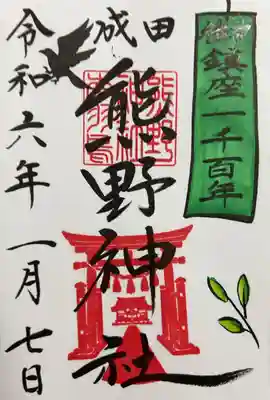 鎮座一千百年
成田
熊野神社
令和六年 一月七日